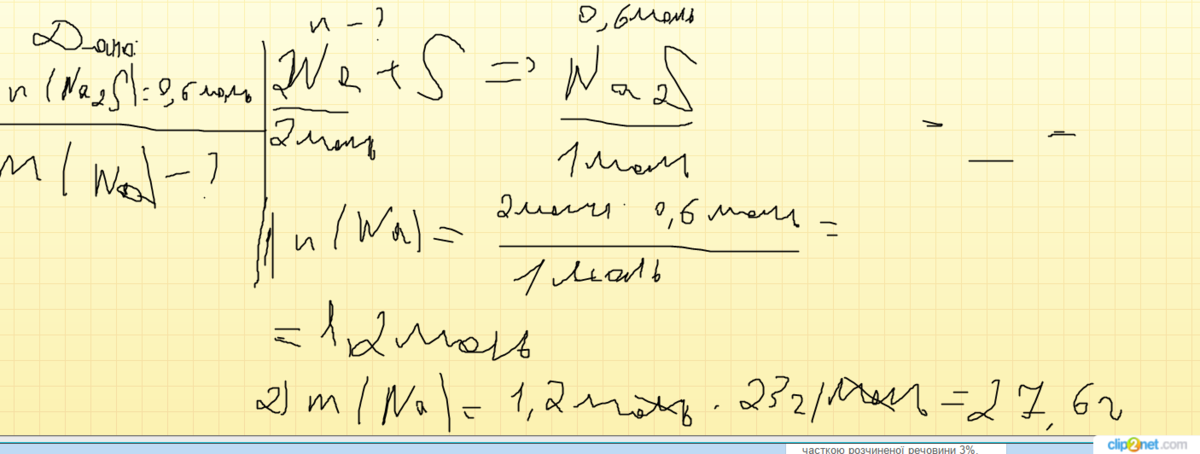 Дано:
n(Na₂S)=0,6 моль
m(Na)-?
n-?
0,6 моль
2Na + S => Na₂S
2 моль
1 моль
1) n(Na) = 2 моль · 0,6 моль / 1 моль =
= 1,2 моль
2) m(Na) = 1,2 моль · 23 г/моль = 27,6 г
= __ =
часткою розчиненої речовини 3%.
clip2net.com